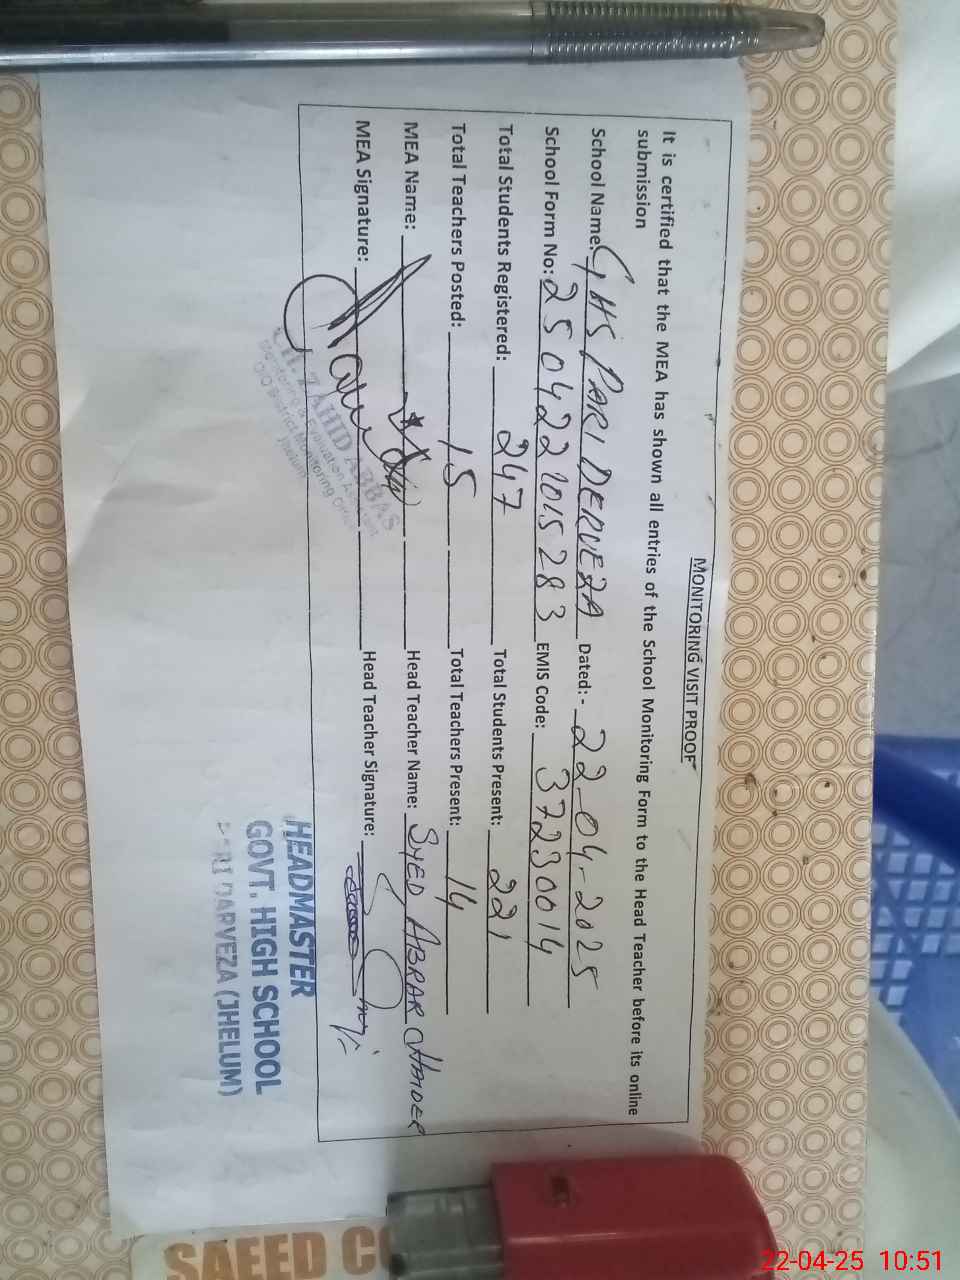 MONITORING VISIT PROOF
It is certified that the MEA has shown all entries of the School Monitoring Form to the Head Teacher before its online
submission
School Name: GHS PARI DERVEZA Dated:- 22-04-2025
School Form No: 2504221015283 EMIS Code: 37230014
Total Students Registered: 247 Total Students Present: 221
Total Teachers Posted: 15 Total Teachers Present: 14
MEA Name: Head Teacher Name: SYED ABRAR HAIDER
MEA Signature: Head Teacher Signature:
CH. ZAHID ABBAS
Monitoring & Evaluation Assistant
O/O District Monitoring Officer
Jhelum
HEADMASTER
GOVT. HIGH SCHOOL
PARI DARVEZA (JHELUM)
SAEED
22-04-25 10:51